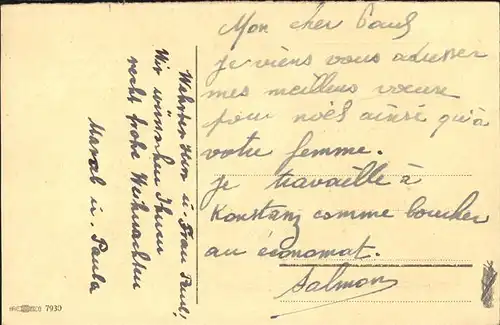 Mon cher Paul
je viens vous adresser
mes meilleurs voeux
pour noël ainsi qu'à
votre femme.
je travaille à
Konstanz comme boucher
au économat.
Salmon
Herr u. Frau Paul,
Wir wünschen Ihnen
recht frohe Weihnachten
u. Paula
7930